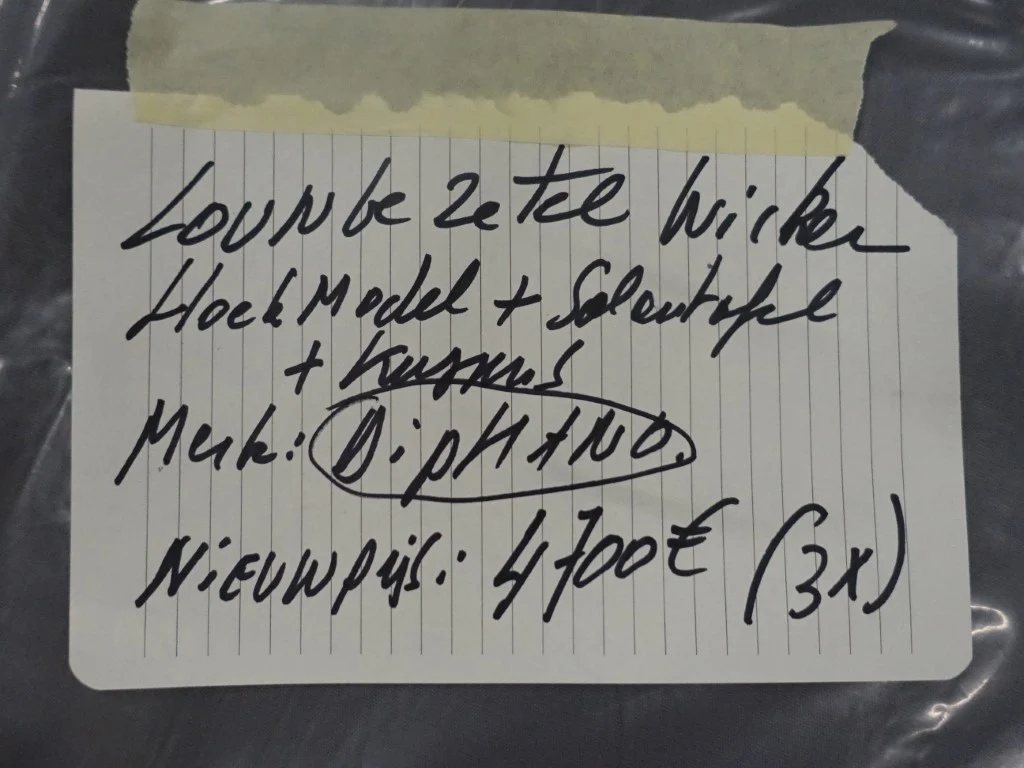 Lounge Zetel Wicker
Hoek Model + Salontafel
+ Kussens
Merk: DiPHANO.
NiEUWpRijs: 4700€ (3x)